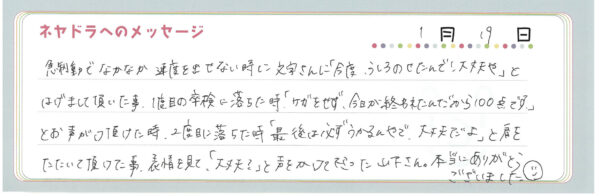 ネヤドラへのメッセージ
1月19日
急制動でなかなか速度を出せない時に文字さんに「今度、うしろのせたんで！大丈夫や」と
はげまして頂いた事、1度目の卒検に落ちた時「ケガをせず、今日が終われたんだから100点です」
とお声がけ頂けた時、2度目に落ちた時「最後は必ずうかるんやで、大丈夫だよ」と肩を
たたいて頂けた事、表情を見て、「大丈夫？」と声をかけて下さった山下さん。本当にありがとう
ございました。